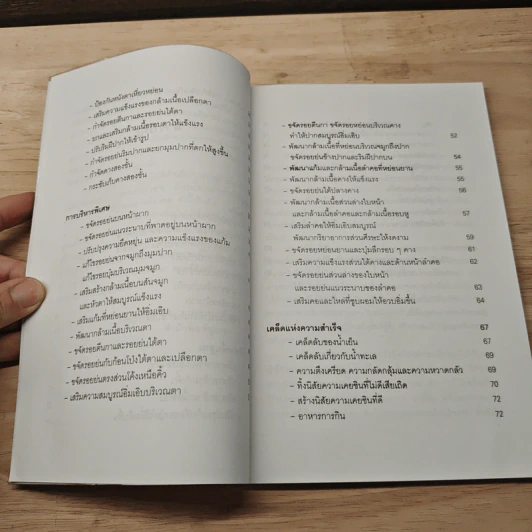 - ป้องกันหนังตาเหี่ยวหย่อน
- เสริมความแข็งแรงของกล้ามเนื้อเปลือกตา
- กำจัดรอยตีนกาและรอยย่นใต้ตา
- ยกและเสริมกล้ามเนื้อรอบตาให้แข็งแรง
- ปรับริมฝีปากให้เข้ารูป
- กำจัดรอยย่นริมฝีปากและยกมุมปากที่ตกให้สูงขึ้น
- กำจัดคางสองชั้น
- กระชับเก็บคางสองชั้น
การบริหารพิเศษ
- ขจัดรอยย่นบนหน้าผาก
- ขจัดรอยย่นแนวระนาบที่พาดอยู่บนหน้าผาก
- ปรับปรุงความยืดหยุ่น และความแข็งแรงของแก้ม
- แก้ไขรอยย่นจากจมูกถึงมุมปาก
- แก้ไขรอยบุ๋มบริเวณมุมจมูก
- เสริมสร้างกล้ามเนื้อบนสันจมูก
และหัวตาให้สมบูรณ์แข็งแรง
- เสริมแก้มที่หย่อนยานให้อิ่มเอิบ
- พัฒนากล้ามเนื้อบริเวณตา
- ขจัดรอยตีนกาและรอยย่นใต้ตา
- ขจัดรอยย่นกับก้อนโป่งใต้ตาและเปลือกตา
- ขจัดรอยย่นตรงส่วนโค้งเหนือคิ้ว
- เสริมความสมบูรณ์อิ่มเอิบบริเวณตา
- ขจัดรอยตีนกา ขจัดรอยหย่อนบริเวณคาง
ทำให้ปากสมบูรณ์อิ่มเอิบ 52
- พัฒนากล้ามเนื้อที่หย่อนบริเวณจมูกถึงปาก
ขจัดรอยย่นข้างปากและริมฝีปากบน 54
- พัฒนาแก้มและกล้ามเนื้อลำคอที่หย่อนยาน 55
- พัฒนากล้ามเนื้อคางให้แข็งแรง 55
- ขจัดรอยย่นใต้ปลางคาง 56
- พัฒนากล้ามเนื้อส่วนล่างใบหน้า
และกล้ามเนื้อลำคอและกล้ามเนื้อรอบหู 57
- เสริมลำคอให้อิ่มเอิบสมบูรณ์
พัฒนากริยาอาการส่วนศีรษะให้งดงาม 59
- ขจัดรอยหย่อนยานและปุ่มลึกรอบ ๆ คาง 61
- เสริมความแข็งแรงส่วนใต้คางและด้านหน้าลำคอ 62
- ขจัดรอยย่นส่วนล่างของใบหน้า
และรอยย่นแนวระนาบของลำคอ 63
- เสริมคอและไหล่ที่ซูบผอมให้อวบอิ่มขึ้น 64
เคล็ดแห่งความสำเร็จ 67
- เคล็ดลับของน้ำเย็น 67
- เคล็ดลับเกี่ยวกับน้ำทะเล 69
- ความตึงเครียด ความกลัดกลุ้มและความหวาดกลัว 69
- ทิ้งนิสัยความเคยชินที่ไม่ดีเสียเถิด 70
- สร้างนิสัยความเคยชินที่ดี 72
- อาหารการกิน 72